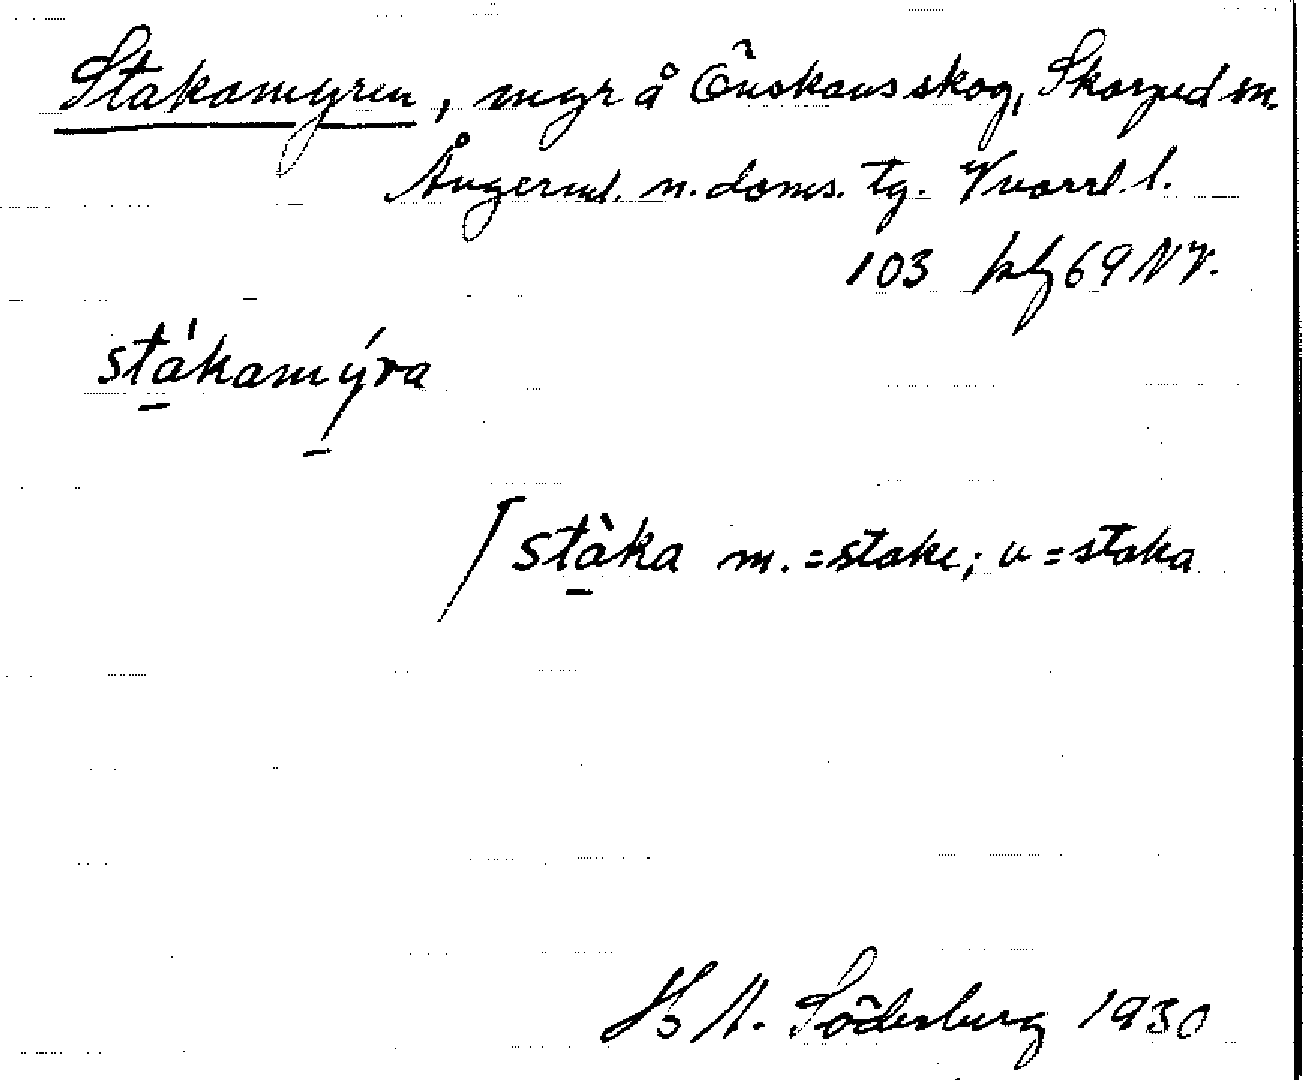 Stakamyren, myr å Önskans skog, Skorped sn.
Ångerml. n. doms. tg. Västernorrl. l.
103 kbl 69 NV.
stákamýra
/ stàka m. = stake; v = staka
H A. Söderberg 1930